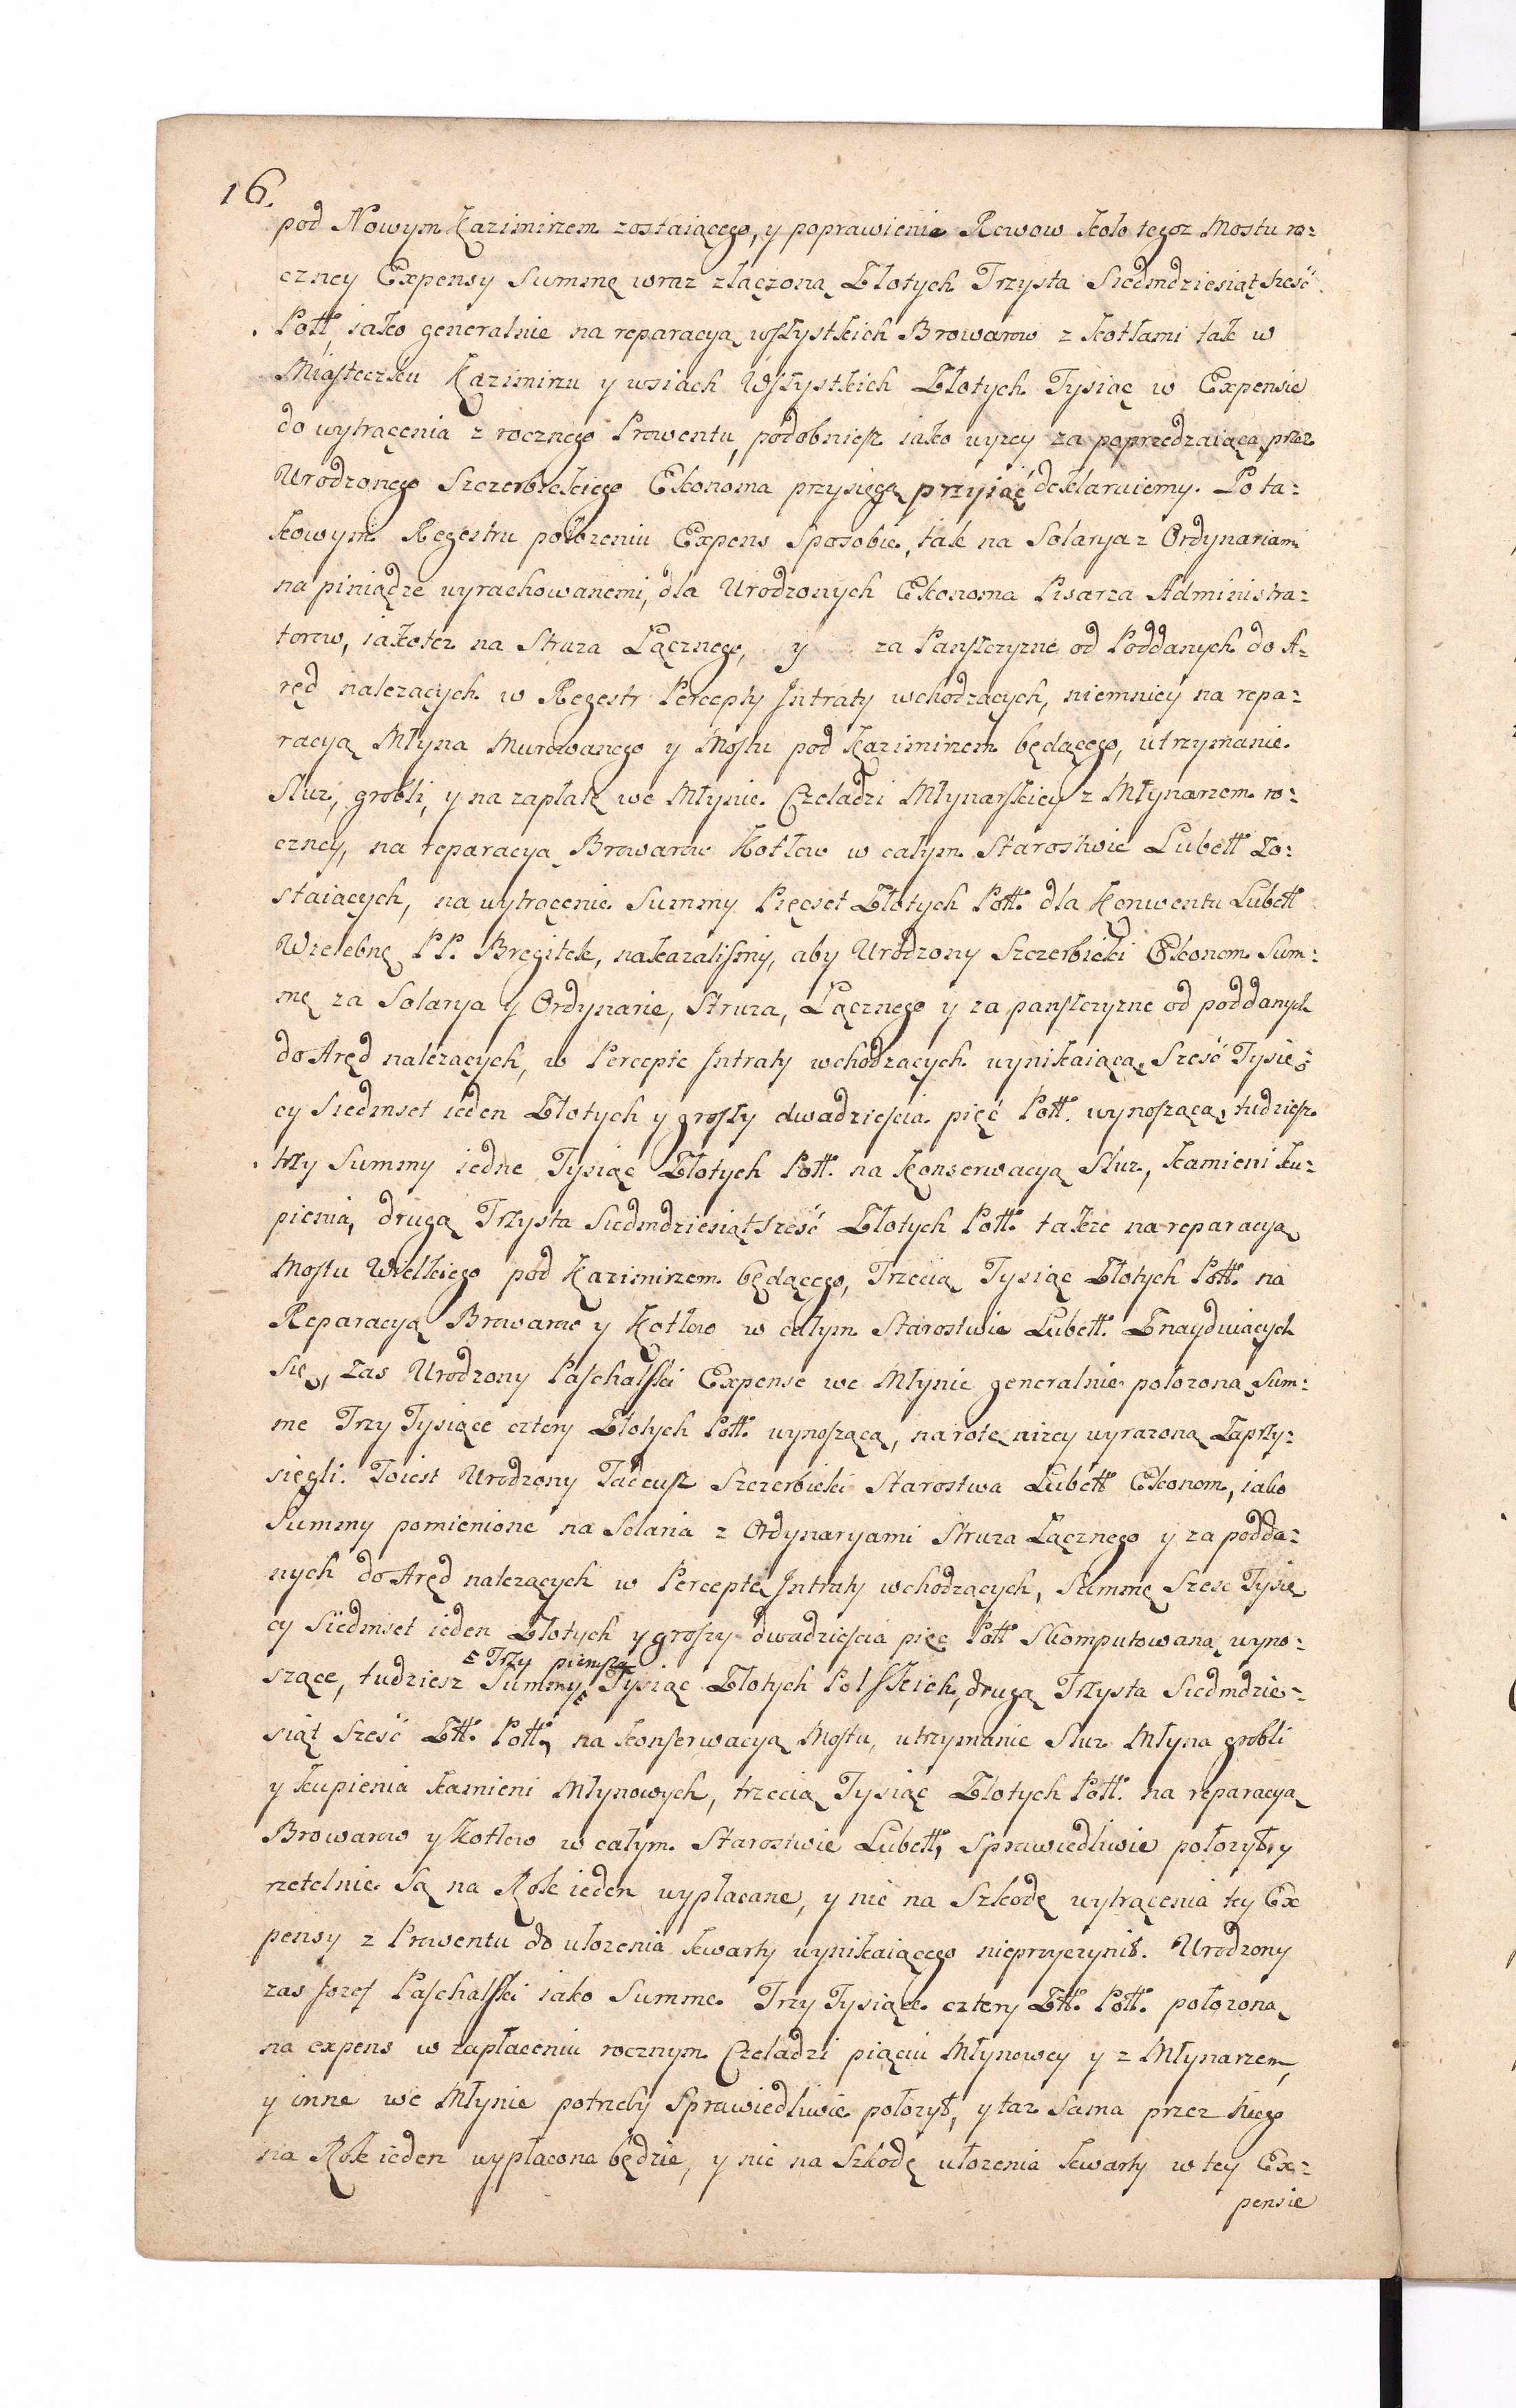 16.
pod Nowym Kazimirzem zostaiącego, y poprawienie Rowow koło tegoz Mostu ro:
czney Expensy Summę wraz złączoną Złotych Trzysta Siedmdziesiąt sześć
Poll, iako generalnie na reparacyą wszystkich Browarow z kotłami tak w
Miasteczku Kazimirzu y wsiach Wszystkich Złotych Tysiąc w Expensie
do wytrącenia z rocznego Prowentu, podobniesz iako wyzey za poprzedzaiącą przez
Urodzonego Szczerbickiego Ekonoma przysięgą przyiąć deklaruiemy. Po ta:
kowym Regestru połozeniu Expens Sposobie, tak na Solarya z Ordynariami
na piniądze wyrachowanemi, dla Urodzonych Ekonoma Pisarza Administra:
torow, iakotez na Struza Łącznego, y za Panszczyznę od Poddanych do A:
ręd nalezących w Regestr Percepty Jntraty wchodzących, niemniey na repa:
racyą Młyna Murowanego y Mostu pod Kazimirzem będącego, utrzymanie
Sluz, grobli, y na zapłatę we Młynie Czeladzi Młynarskiey z Młynarzem ro:
czney, na reparacyą Browarow Kotłow w całym Starostwie Lubell Zo:
staiących, na wytrącenie Summy Pięcset Złotych Poll. dla Konwentu Lubell
Wielebnę PP. Bregitek, nakazalismy, aby Urodzony Szczerbicki Ekonom Sum:
mę za Solarya y Ordynarie, Struza, Łącznego y za panszczyznę od poddanych
do Aręd nalezących, w Percepte Jntraty wchodzących wynikaiącą, Sześć Tysię:
cy Siedmset ieden Złotych y groszy dwadziescia pięć Poll. wynoszącą, tudziesz
trzy Summy iedne Tysiąc Złotych Poll. na Konserwacyą Sluz, kamieni ku:
pienia, drugą Trzysta Siedmdziesiąt sześć Złotych Poll. takze na reparacyą
Mostu Wielkiego pod Kazimirzem będącego, Trzecią Tysiąc Złotych Poll. na
Reparacyą Browarow y Kotłow w całym Starostwie Lubell. Znayduiących
się, Zas Urodzony Paschalski Expense we Młynie generalnie połozoną Sum:
me Trzy Tysiące cztery Złotych Poll. wynoszącą, na rotę nizey wyrazoną Zaprzy:
sięgli. Toiest Urodzony Tadeusz Szczerbicki Starostwa Lubell Ekonom, iako
Summy pomienione na Solaria z Ordynaryami Struza Łącznego y za podda:
nych do Aręd nalezących w Perceptę Jntraty wchodzących, Summę Szesc Tysię
cy Siedmset ieden Złotych y groszy dwadziescia pięc Poll Skomputowaną wyno:
Trzy pierwszą
szące, tudziesz Summy Tysiąc Złotych Polskich, drugą Trzysta Siedmdzie:
siąt Sześć Zll. Poll. na konserwacyą Mostu, utrzymanie Sluz Młyna grobli
y kupienia kamieni Młynowych, trzecią Tysiąc Złotych Poll. na reparacyą
Browarow y Kotłow w całym Starostwie Lubell, Sprawiedliwie połozył, y
rzetelnie Są na Rok ieden wypłacane, y nic na Szkodę wytrącenia tey Ex
pensy z Prowentu do ułozenia kwarty wynikaiącego nieprzyczynił. Urodzony
zas Jozef Paschalski iako Summe Trzy Tysiące cztery Zll. Poll. połozoną
na expens w zapłaceniu rocznym Czeladzi pięciu Młynowey y z Młynarzem,
y inne we Młynie potrzeby Sprawiedliwie połozył, y taz Sama przez niego
na Rok ieden wypłacona będzie, y nic na Szkodę ułozenia kwarty w tey Ex:
pensie